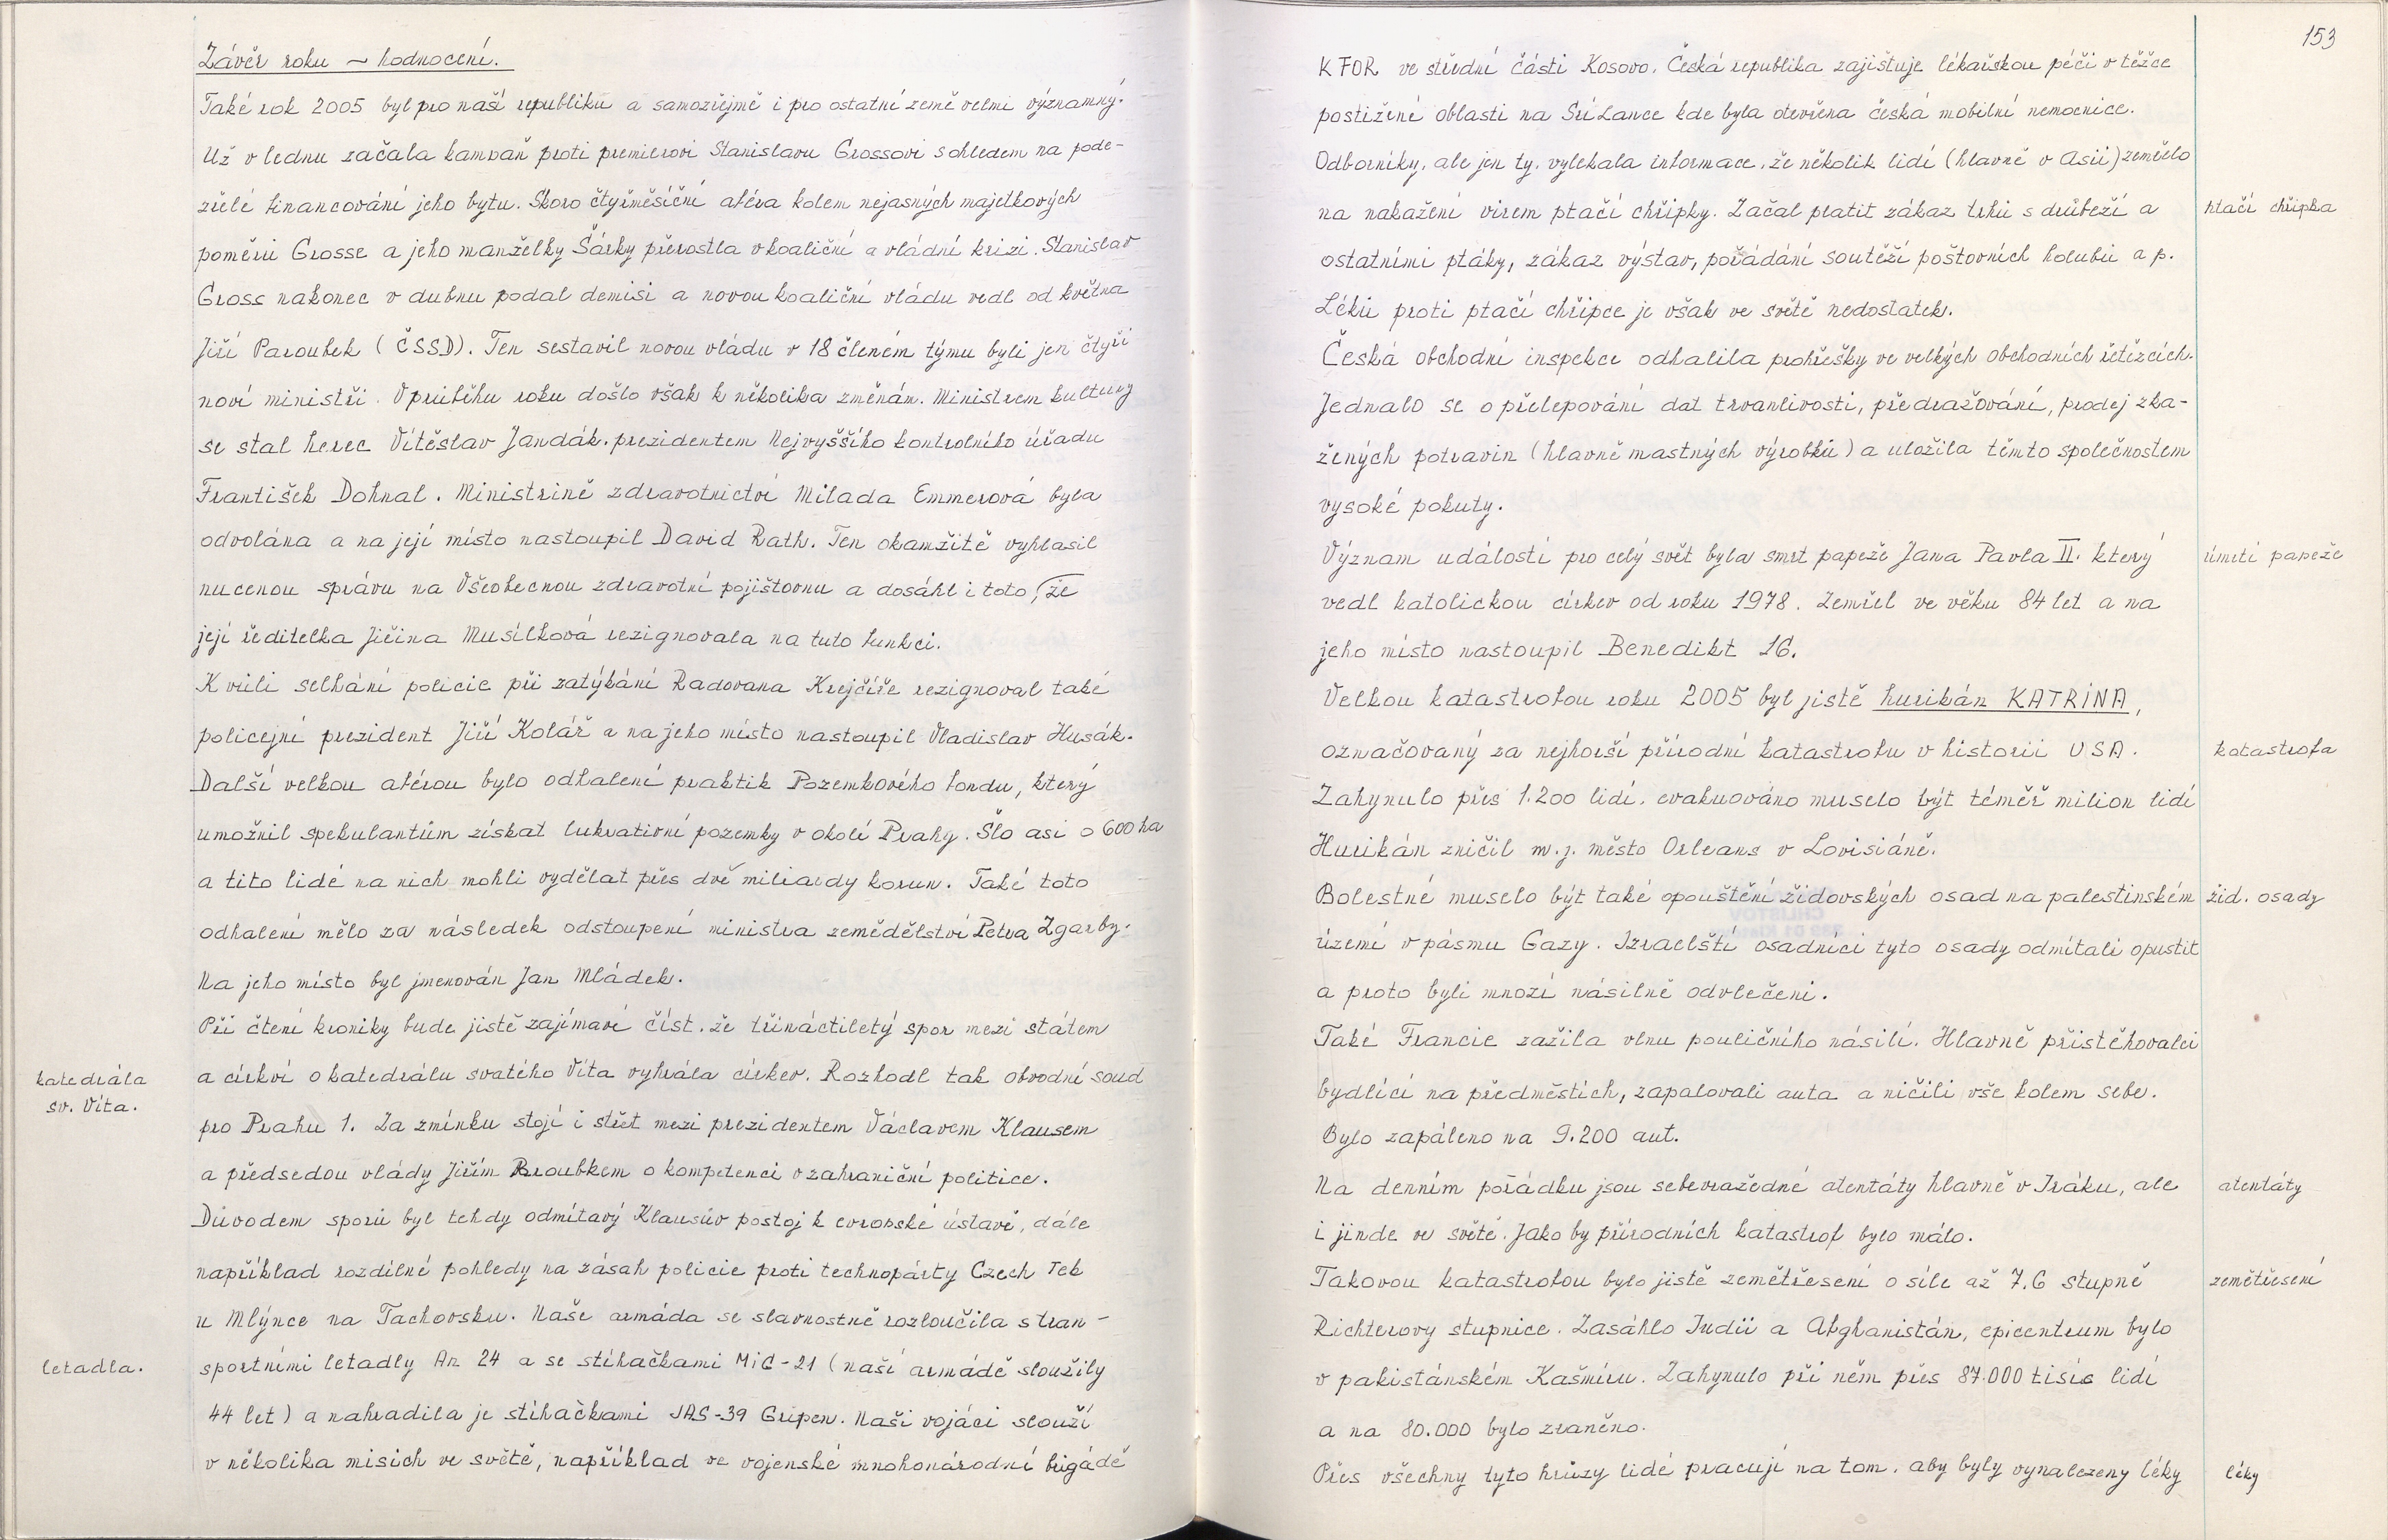 Závěr roku – hodnocení.
Také rok 2005 byl pro naší republiku a samozřejmě i pro ostatní země velmi významný.
Už v lednu začala kampaň proti premierovi Stanislavu Grossovi s ohledem na pode-
zřelé financování jeho bytu. Skoro čtyřměsíční aféra kolem nejasných majetkových
poměrů Grosse a jeho manželky Šárky přerostla v koaliční a vládní krizi. Stanislav
Gross nakonec v dubnu podal demisi a novou koaliční vládu vedl od května
Jiří Paroubek (ČSSD). Ten sestavil novou vládu v 18 členém týmu byli jen čtyři
noví ministři. V průběhu roku došlo však k několika změnám. Ministrem kultury
se stal herec Vítěslav Jandák. prezidentem Nejvyššího kontrolního úřadu
František Dohnal. Ministrině zdravotnictví Milada Emmerová byla
odvolána a na její místo nastoupil David Rath. Ten okamžitě vyhlasil
nucenou správu na Všeobecnou zdravotní pojištovnu a dosáhl i toto, že
její ředitelka Jiřina Musílková rezignovala na tuto funkci.
Kvůli selhání policie při zatýkání Radovana Krejčíře rezignoval také
policejní prezident Jiří Kolář a na jeho místo nastoupil Vladislav Husák.
Další velkou aférou bylo odhalení praktik Pozemkového fondu, který
umožnil spekulantům získat lukrativní pozemky v okolí Prahy. Šlo asi o 600 ha
a tito lidé na nich mohli vydělat přes dvě miliardy korun. Také toto
odhalení mělo za následek odstoupení ministra zemědělství Petra Zgarby.
Na jeho místo byl jmenován Jan Mládek.
Při čtení kroniky bude jistě zajímavé číst. že třináctiletý spor mezi státem
katedrála
sv. Víta.
a církví o katedrálu svatého Víta vyhrála církev. Rozhodl tak obvodní soud
pro Prahu 1. Za zmínku stojí i střet mezi prezidentem Václavem Klausem
a předsedou vlády Jiřím Paroubkem o kompetenci v zahraniční politice.
Důvodem sporů byl tehdy odmítavý Klausův postoj k evropské ústavě, dále
například rozdílné pohledy na zásah policie proti technopárty Czech Tek
u Mlýnce na Tachovsku. Naše armáda se slavnostně rozloučila s tran-
letadla.
sportními letadly An 24 a se stíhačkami MiG-21 (naší armádě sloužily
44 let) a nahradila je stíhačkami JAS-39 Gripen. Naši vojáci slouží
v několika misích ve světě, například ve vojenské mnohonárodní brigádě
153
KFOR ve střední části Kosovo. Česká republika zajištuje lékařskou péči v těžce
postižené oblasti na Srí Lance kde byla otevřena česká mobilní nemocnice.
Odborníky, ale jen ty, vylekala informace, že několik lidí (hlavně v Asii) zemřelo
na nakažení virem ptačí chřipky. Začal platit zákaz trhů s drůbeží a
ptačí chřipka
ostatními ptáky, zákaz výstav, pořádání soutěží poštovních holubů a p.
Léků proti ptačí chřipce je však ve světě nedostatek.
Česká obchodní inspekce odhalila prohřešky ve velkých obchodních řetězcích.
Jednalo se o přelepování dat trvanlivosti, předražování, prodej zka-
žených potravin (hlavně mastných výrobků) a uložila těmto společnostem
vysoké pokuty.
Význam událostí pro celý svět byla smrt papeže Jana Pavla II. který
úmrtí papeže
vedl katolickou církev od roku 1978. Zemřel ve věku 84 let a na
jeho místo nastoupil Benedikt 16.
Velkou katastrofou roku 2005 byl jistě hurikán KATRINA,
označovaný za nejhorší přírodní katastrofu v historii USA.
katastrofa
Zahynulo přes 1.200 lidí, evakuováno muselo být téměř milion lidí
Hurikán zničil m.j. město Orleans v Lovisiáně.
Bolestné muselo být také opouštění židovských osad na palestinském
žid. osady
území v pásmu Gazy. Izraelští osadníci tyto osady odmítali opustit
a proto byli mnozí násilně odvlečeni.
Také Francie zažila vlnu pouličního násilí. Hlavně přistěhovalci
bydlící na předměstích, zapalovali auta a ničili vše kolem sebe.
Bylo zapáleno na 9.200 aut.
Na denním pořádku jsou sebevražedné atentáty hlavně v Iráku, ale
atentáty
i jinde ve světě. Jako by přírodních katastrof bylo málo.
Takovou katastrofou bylo jistě zemětřesení o síle až 7.6 stupně
zemětřesení
Richterovy stupnice. Zasáhlo Indii a Afghanistán, epicentrum bylo
v pakistánském Kašmíru. Zahynulo při něm přes 87.000 tisíc lidí
a na 80.000 bylo zraněno.
Přes všechny tyto hrůzy lidé pracují na tom. aby byly vynalezeny léky
léky